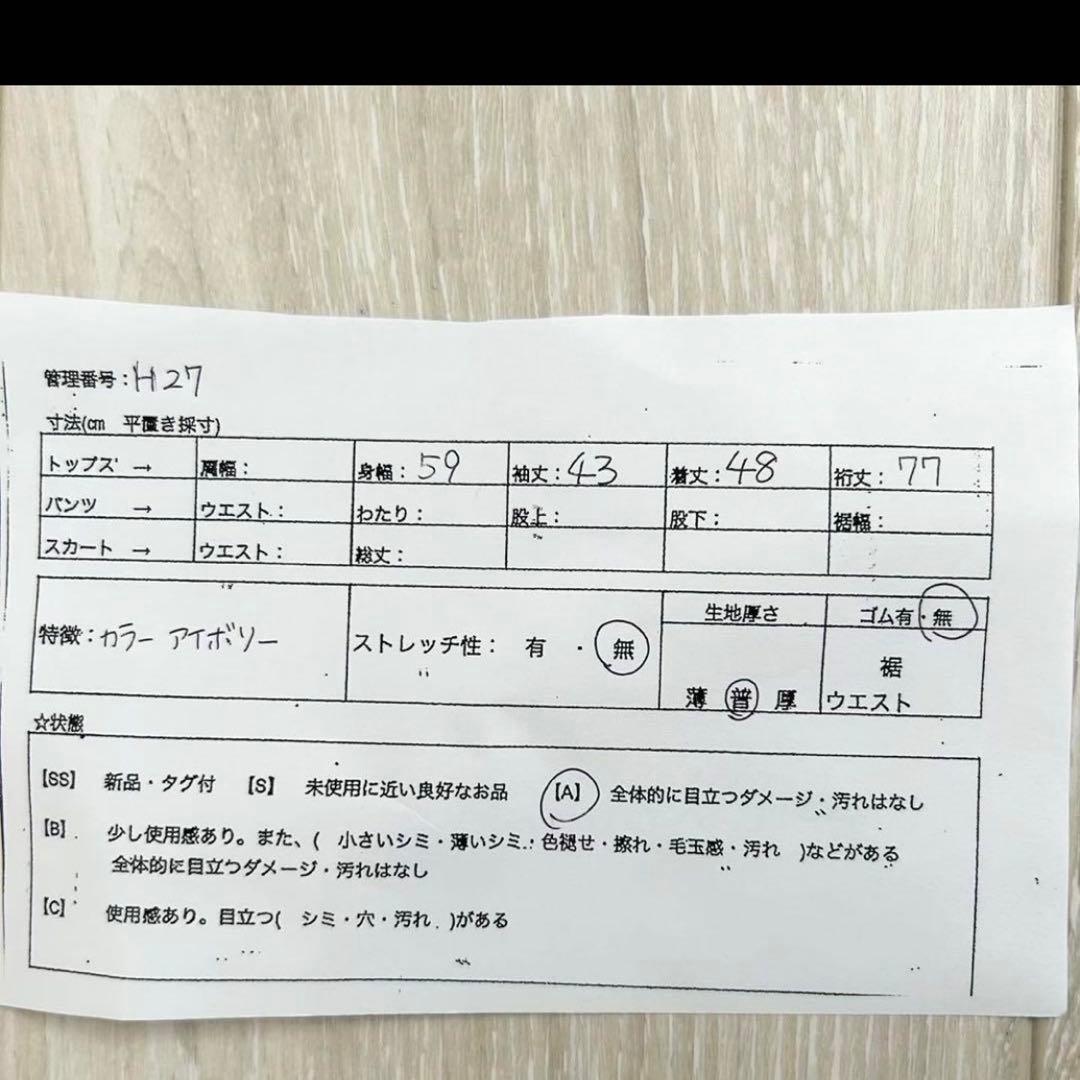 管理番号:H27
寸法(cm 平置き採寸)
トップス → 肩幅: 身幅:59 袖丈:43 着丈:48 裄丈:77
パンツ → ウエスト: わたり: 股上: 股下: 裾幅:
スカート → ウエスト: 総丈:
特徴:カラー アイボリー ストレッチ性: 有 ・ 無
生地厚さ ゴム有・無
裾
薄 普 厚 ウエスト
☆状態
【SS】 新品・タグ付 【S】 未使用に近い良好なお品 【A】 全体的に目立つダメージ・汚れはなし
【B】 少し使用感あり。また、( 小さいシミ・薄いシミ・色褪せ・擦れ・毛玉感・汚れ )などがある
全体的に目立つダメージ・汚れはなし
【C】 使用感あり。目立つ( シミ・穴・汚れ )がある